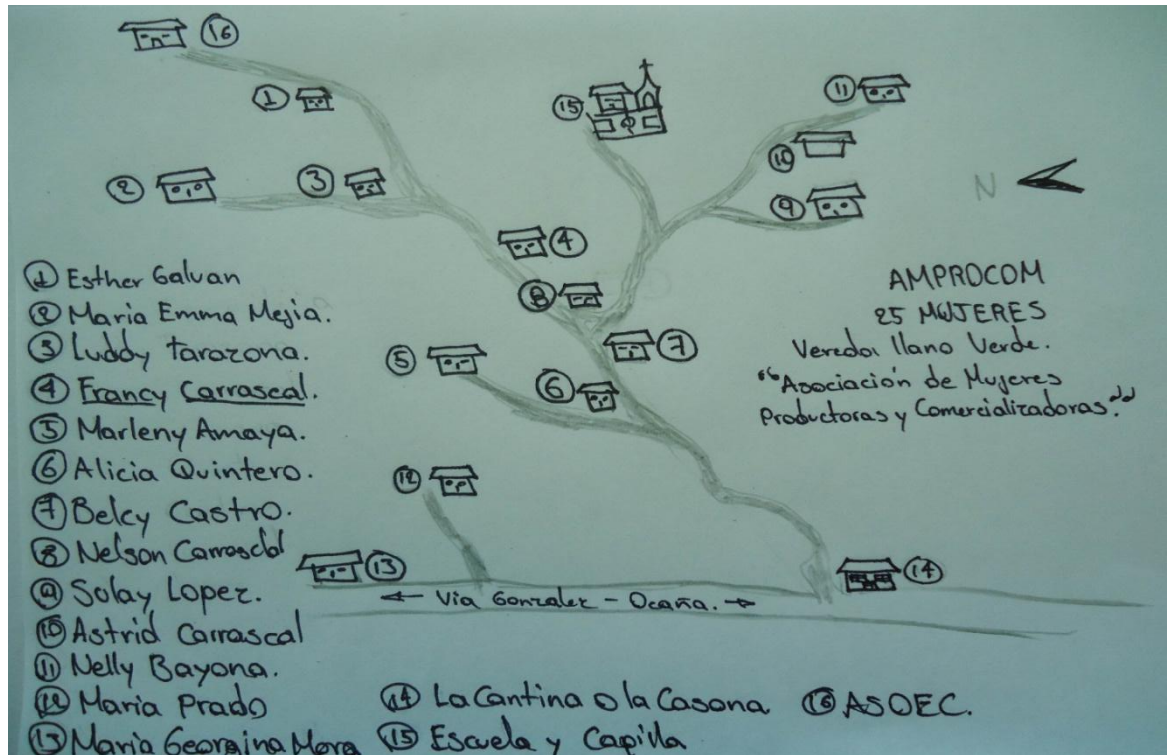 16
1
15
11
10
2
3
9
N
4
8
7
5
6
12
13
14
← Via Gonzalez - Ocaña. →
AMPROCOM
25 MUJERES
Vereda llano Verde.
"Asociación de Mujeres
Productoras y Comercializadoras."
1 Esther Galvan
2 Maria Emma Mejia.
3 Luddy Tarazona.
4 Francy Carrascal.
5 Marleny Amaya.
6 Alicia Quintero.
7 Belcy Castro.
8 Nelson Carrascal
9 Solay Lopez.
10 Astrid Carrascal
11 Nelly Bayona.
12 Maria Prado
13 Maria Georgina Mora
14 La Cantina o la Casona
15 Escuela y Capilla
16 ASOEC.